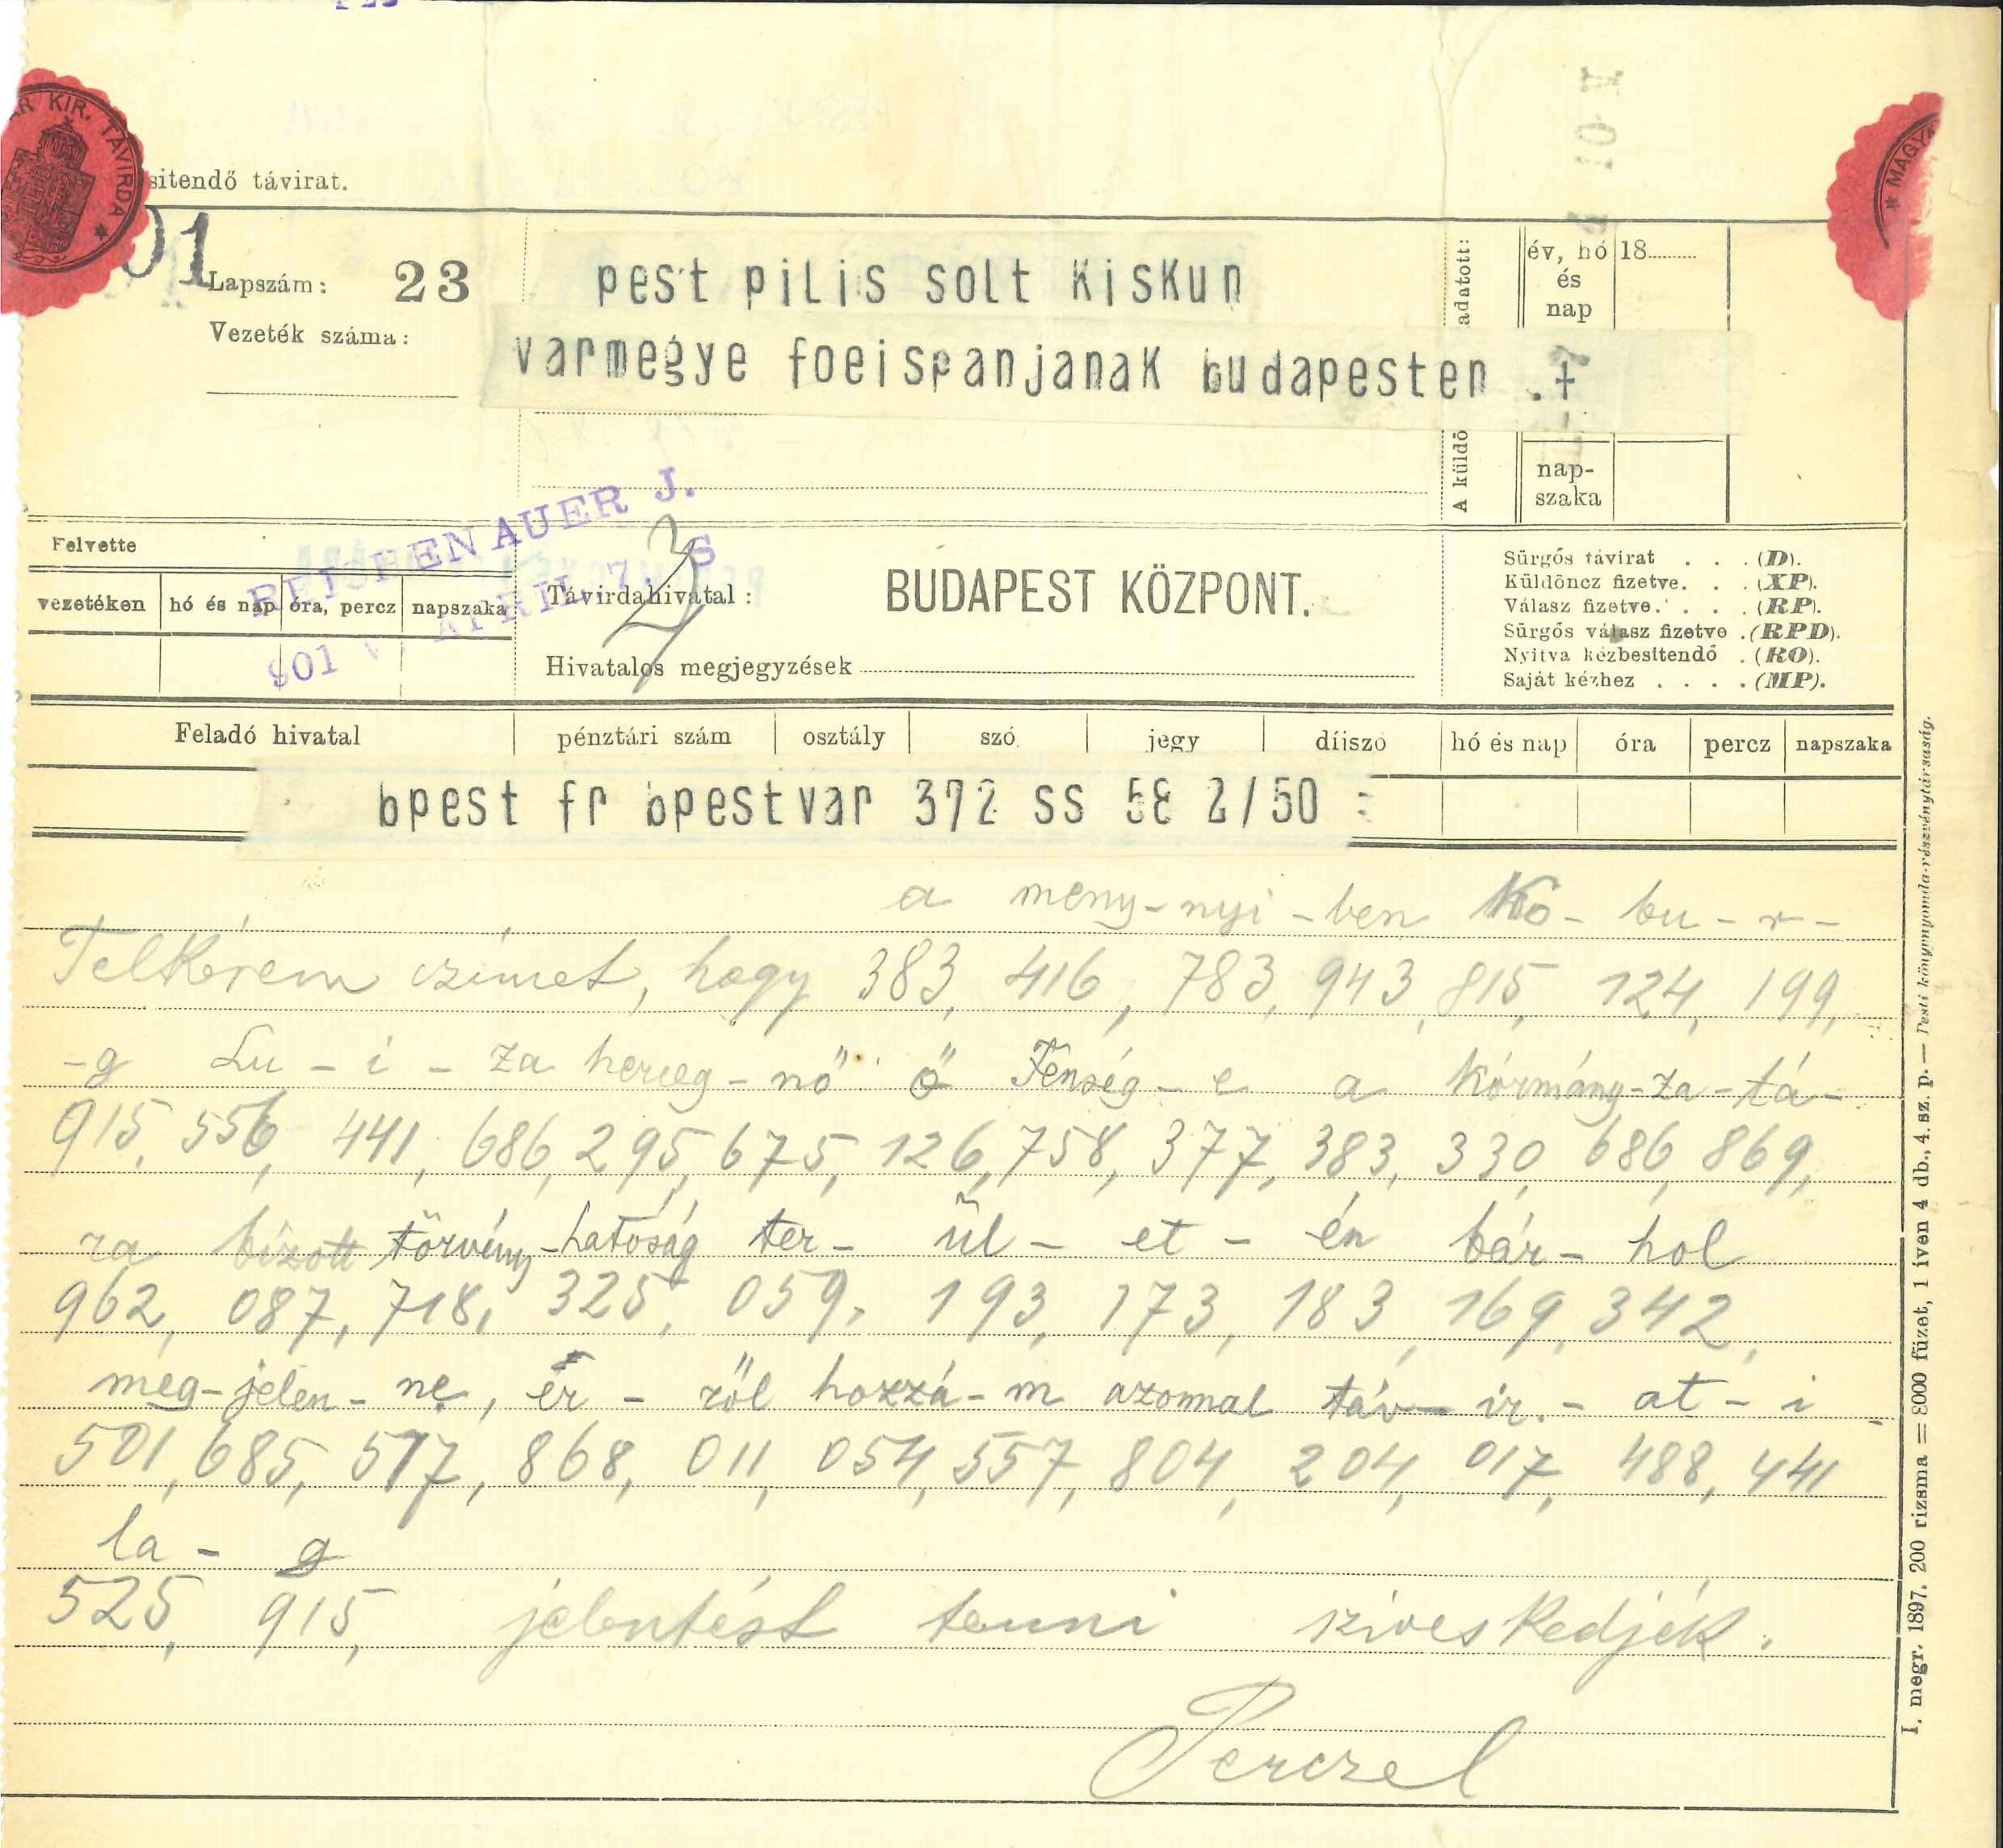 ÁR KIR. TÁVIRDA *
* MAGYA
sitendő távirat.
01
Lapszám: 23
Vezeték száma:
pest pilis solt kiskun
varmegye foeispanjanak budapesten .+
A küldő
adatott:
év, hó és nap
18
nap-szaka
Felvette
vezetéken
hó és nap
óra, percz
napszaka
REICHENAUER J.
APRIL 7. S
901
Távirdahivatal: BUDAPEST KÖZPONT.
Hivatalos megjegyzések
Sürgős távirat . . . (D).
Küldöncz fizetve. . . (XP).
Válasz fizetve. . . . (RP).
Sürgős válasz fizetve . (RPD).
Nyitva kézbesitendő . (RO).
Saját kézhez . . . . (MP).
Feladó hivatal
pénztári szám
osztály
szó
jegy
díjszó
hó és nap
óra
percz
napszaka
bpest fr bpestvar 372 ss 58 2/50 =
a meny-nyi-ben Ko-bu-r-
Felkérem czímet, hogy 383, 416, 783, 943, 815, 124, 199,
-g Lu-i-za herceg-nő ő Fenség-e a kormány-za-tá-
915, 556, 441, 686, 295, 675, 126, 758, 377, 383, 330, 686, 869,
ra bízott törvény-hatóság ter-ül-et-én bár-hol
962, 087, 718, 325, 059, 193, 173, 183, 169, 342,
meg-jelen-ne, er-ről hozzá-m azonnal táv-ir.-at-i-
501, 685, 517, 868, 011, 054, 557, 804, 204, 017, 488, 441
la-g
525, 915, jelentést tenni sziveskedjék.
Perczel
I. megr. 1897. 200 rizsma = 8000 füzet, 1 iven 4 db., 4. sz. p. — Pesti könyvnyomda-részvénytársaság.